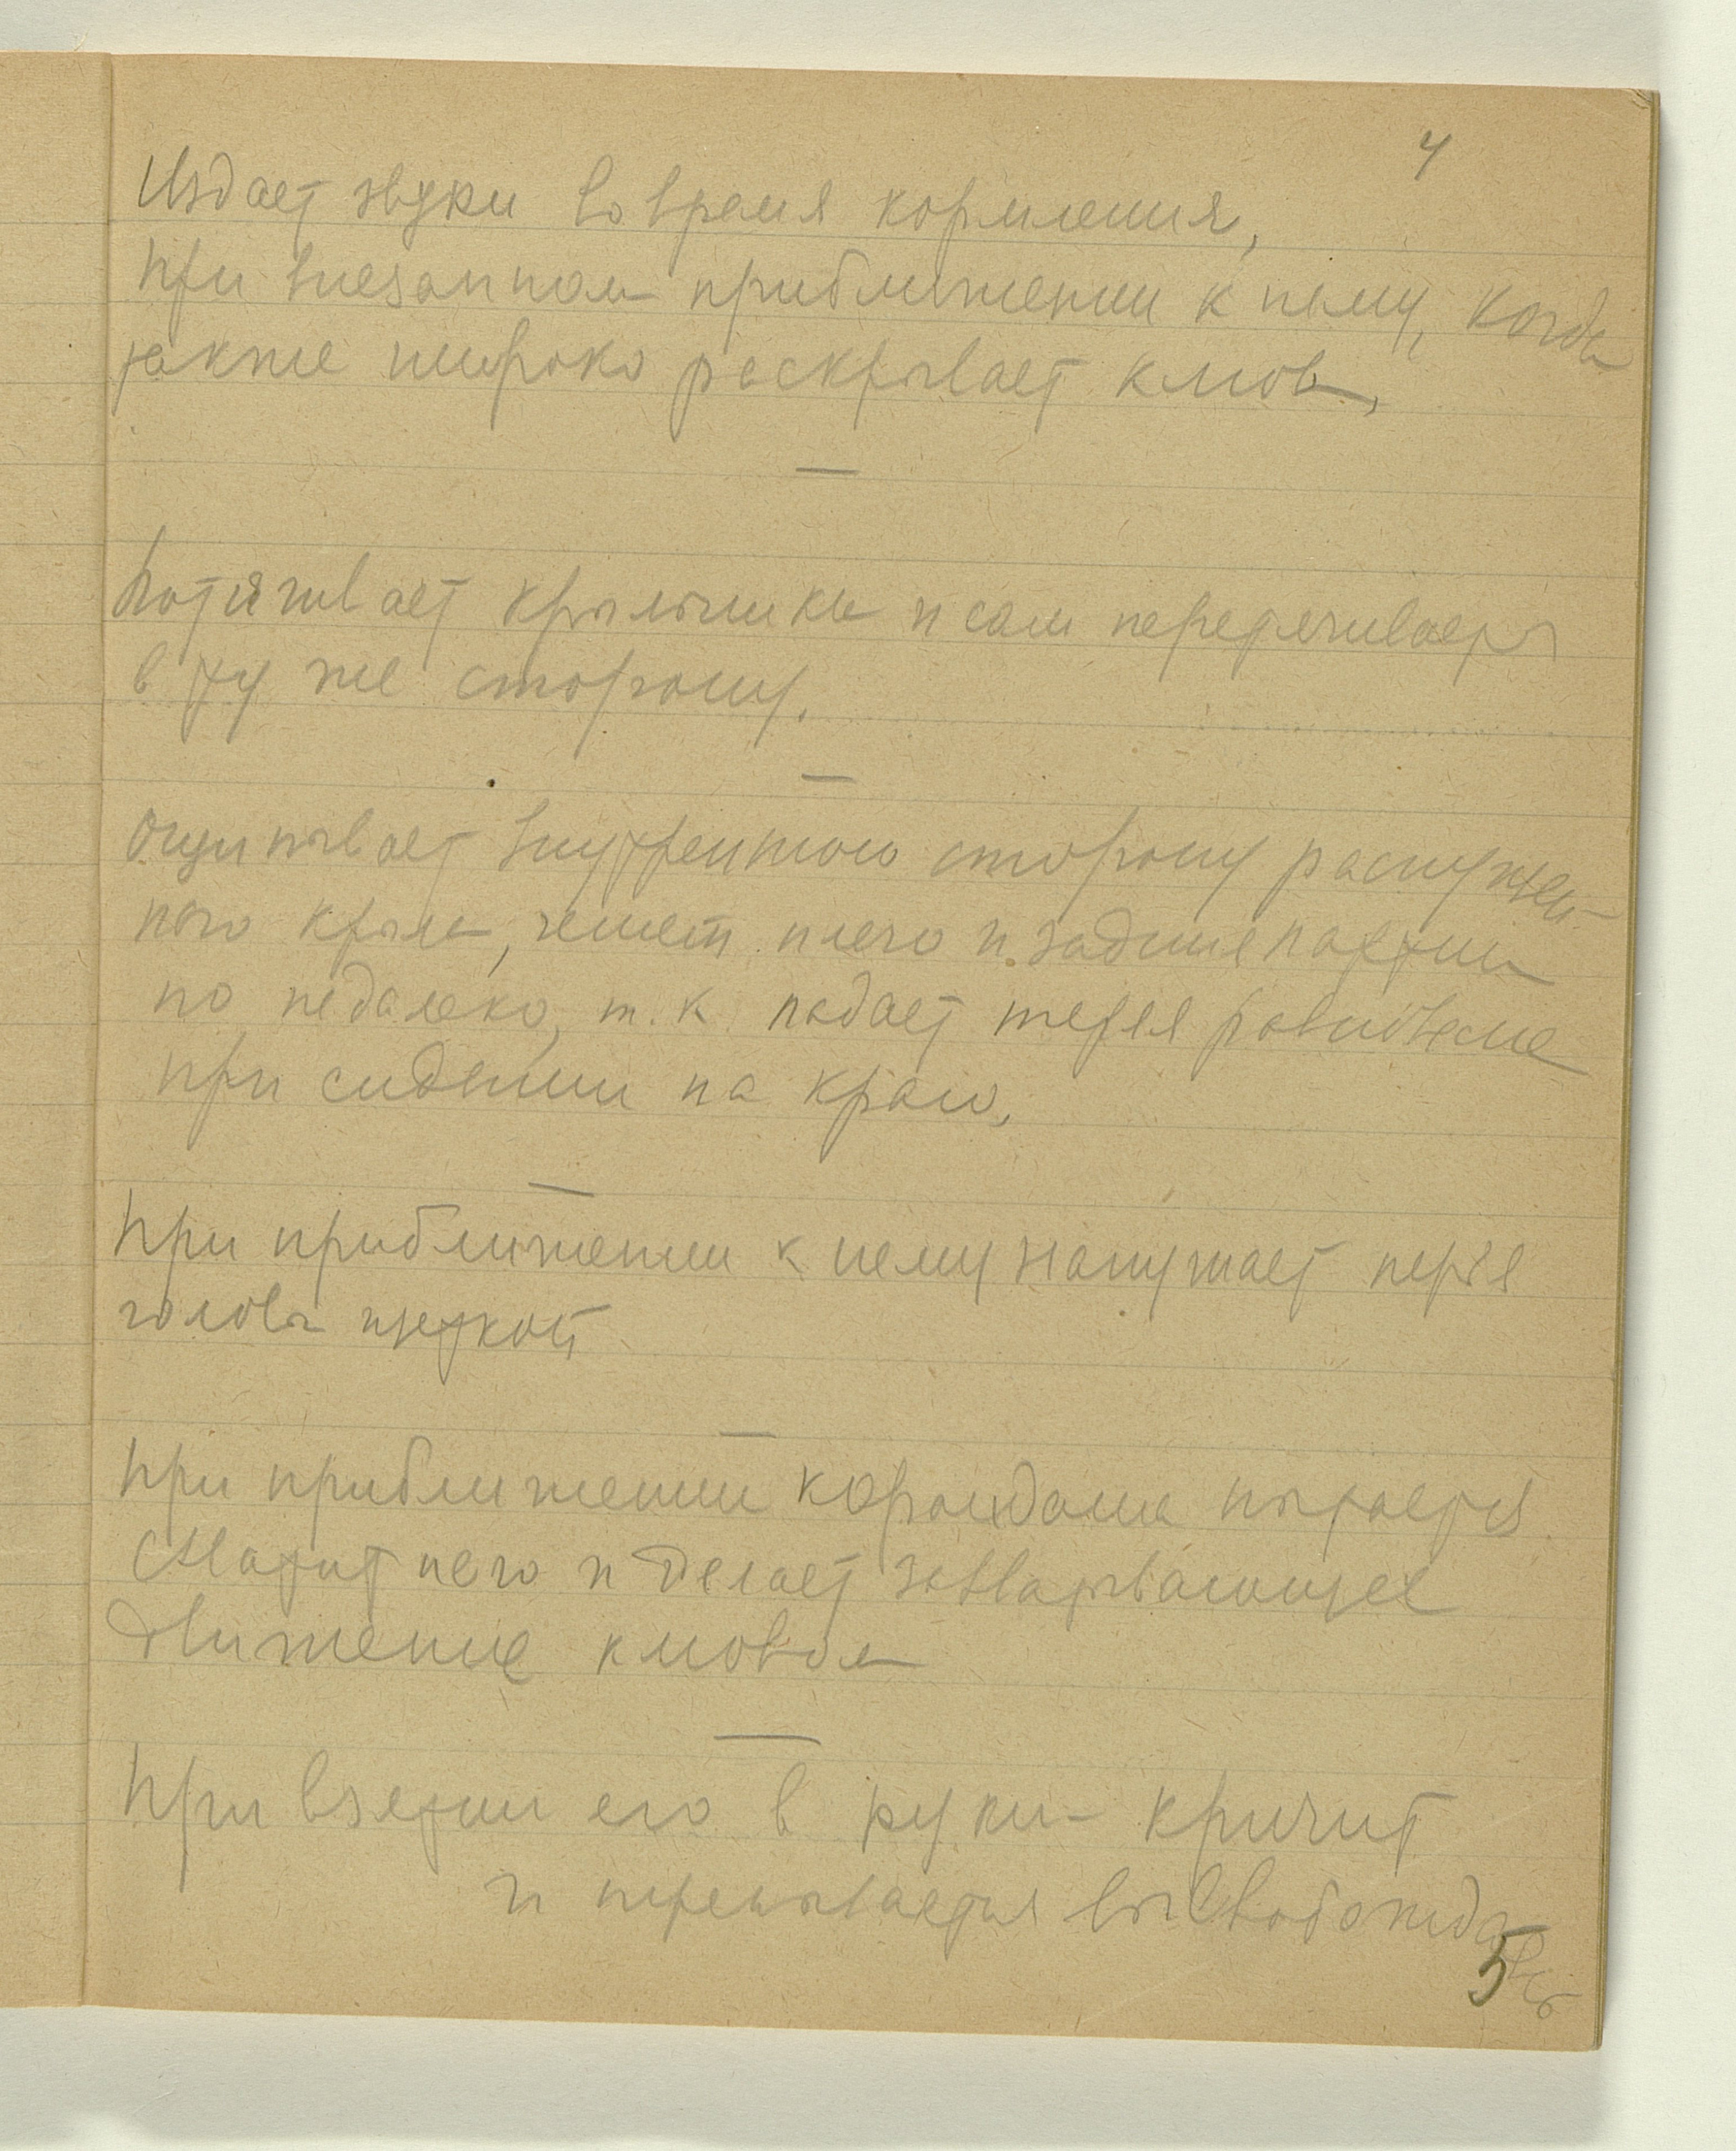 4
Издает звуки во время кормления,
при внезапном приближении к нему, когда
также широко раскрывает клюв,
—
Потягивает крылышки и сам перетягивается
в ту же сторону.
—
Ощипывает внутреннюю сторону распущен-
ного крыла, чешет плечо и задние партии
но недалеко, т.к. падает теряя равновесие
при сидении на краю,
—
При приближении к нему напушает перья
головы щеткой
—
При приближении карандаша пытается
схватит него и делает захватывающее
движение клювом
—
При взятии его в руки - кричит
и
5